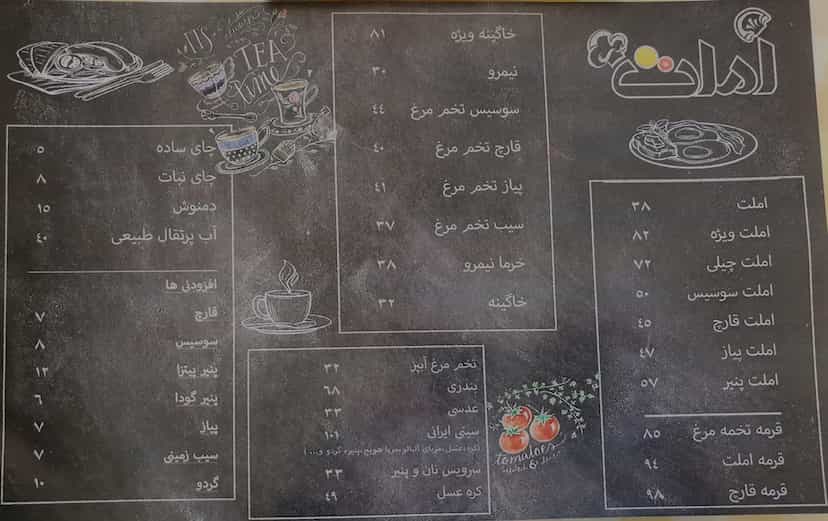 املت
املت ۳۸
املت ویژه ۸۲
املت چیلی ۷۲
املت سوسیس ۵۰
املت قارچ ۴۵
املت پیاز ۴۷
املت پنیر ۵۷
قرمه تخمه مرغ ۸۵
قرمه املت ۹۴
قرمه قارچ ۹۸
خاگینه ویژه ۸۱
نیمرو ۳۰
سوسیس تخم مرغ ۴۴
قارچ تخم مرغ ۴۰
پیاز تخم مرغ ۴۱
سیب تخم مرغ ۳۷
خرما نیمرو ۳۸
خاگینه ۳۲
تخم مرغ آبپز ۳۲
بندری ۶۸
عدسی ۳۳
سینی ایرانی ۱۰۱
(کره،عسل،مربای آلبالو،مربا هویج،پنیر، گردو و... )
سرویس نان و پنیر ۳۳
کره عسل ۴۹
tomatoes
TEA
Time
چای ساده ۵
چای نبات ۸
دمنوش ۱۵
آب پرتقال طبیعی ۴۰
افزودنی ها
قارچ ۷
سوسیس ۸
پنیر پیتزا ۱۲
پنیر گودا ۶
پیاز ۷
سیب زمینی ۷
گردو ۱۰